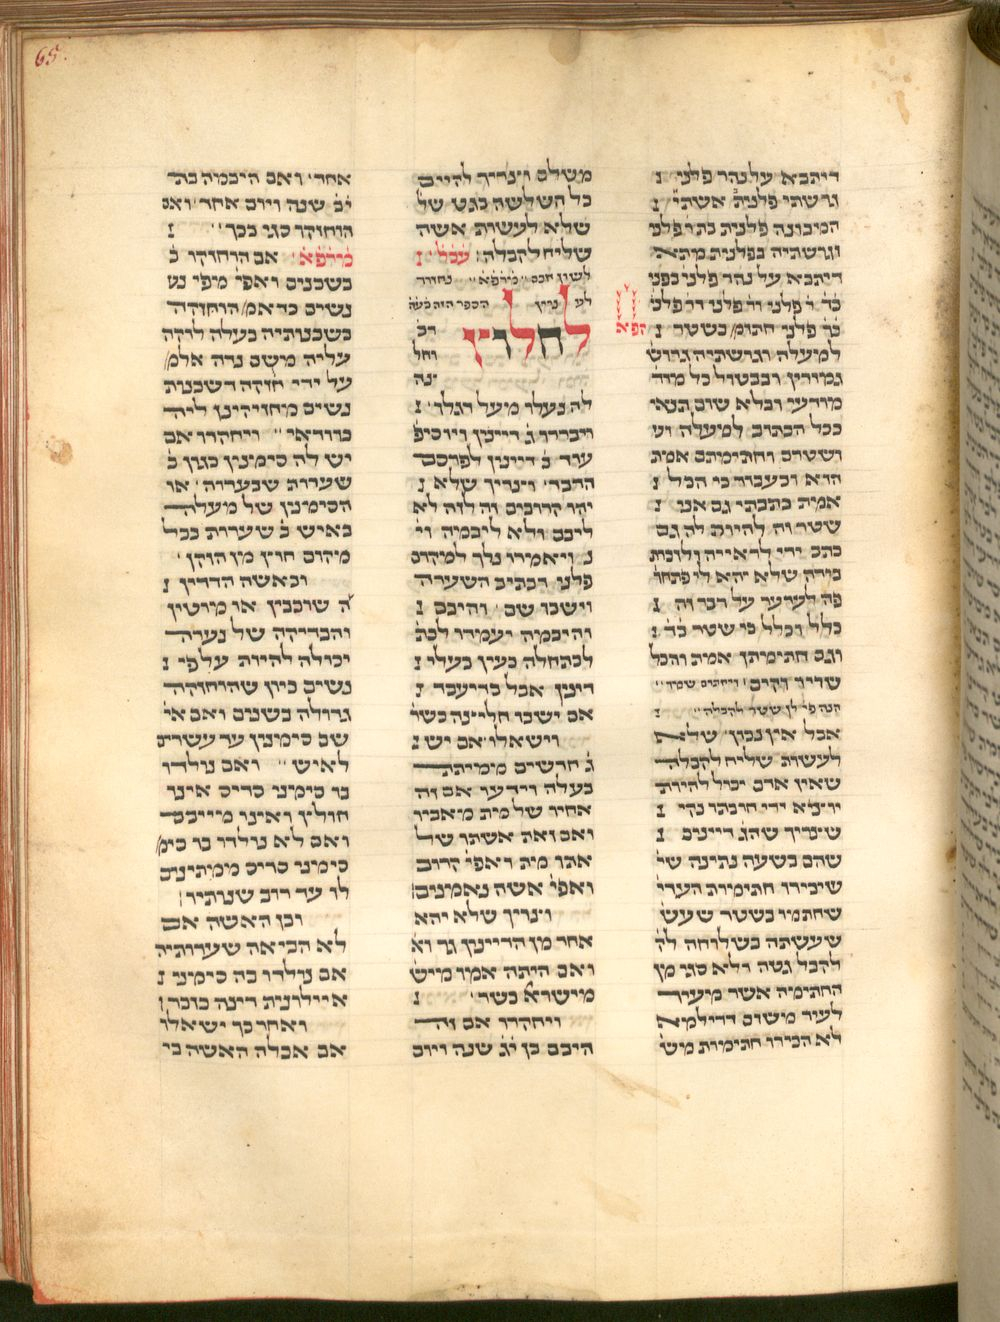 65.
דיתבא על נהר פלני׳
גרשתי פלנית אשתי
המכונה פלנית בת ר׳ פלני׳
וגרשתיה בפלנית מתא
דיתבא על נהר פלני בפני
ב״ד ר׳ פלני ור׳ פלני ור׳ פלני
בר׳ פלני חתומי׳ בשטר
למעלה וגרשתיה גרושי׳
גמורין ובבטול כל מוד׳
מודעי ובלא שום תנאי
ככל הכתוב למעלה וע׳
ושטרם וחתימתם אמת
הוא ובעבור כי הכל
אמת כתבתי גם אני
שטר זה להיות לה גם
כתב ידי לראייה ולזכות
בידה שלא יהא לי פתחון
פה לערער על דבר זה
כלל וכלל כי שטר ב״ד
וגם חתימתן אמת והכל
שריר וקים׳ ויחתום שמו׳
הנה פי׳ לך שטר להבלה׳
אבל אין נכון׳ שלא
לעשות שליח להבלה
שאין אדם יכול להיות
יוצא ידי חובתו נקי
שצריך שהג׳ דיינים
שהם בשעה נתינה של
שיכירו חתימות העדי׳
שחתמו בשטר שעש׳
שעשתה בשלוחה לה
לקבל גטה ולא סגי מן
החתימה אשר מעיד
לעיר משום דדילמא
לא הכירו חתימות מש׳
הפ״א
משלם וצריך להיות
כל השלשה בגט של
שלא לעשות אשה
שליח להבלה׳ עכל׳
לשון חכם מירפא׳ נחזור
לע׳ נריון הספר הזה בעה׳
לחלוץ
רב
וחל
ינה
לה נעלו מעל רגלו׳
ויבררו ג׳ דיינין ויוסיפ׳
עוד ב׳ דיינין לפרסם
הדבר׳ וצריך שלא
יהו קרובים זה לזה לא
ליבם ולא ליבמה וי׳
ויאמרו נלך למקום
פלני דכתיב השערה
וישבו שם׳ והיבם
והיבמה יעמדו לכת׳
לכתחלה כעין בעלי
דינין אבל בדיעבד
אם ישבו חליצה כשר׳
וישאלו אם יש
ג׳ חדשים ממיתת
בעלה וידעו אם זה
אחיו של מת מאביו
ואם זאת אשתו של
אותו מת ואפי׳ קרוב
ואפי׳ אשה נאמנים׳
וצריך שלא יהא
אחד מן הדיינין גר וא׳
ואם היתה אמו מיש׳
מישרא׳ כשר׳
ויחקרו אם זה
היבם בן י״ג שנה ויום
אחד׳ ואם היבמה בת
י״ב שנה ויום אחד׳ ואם
הוחזקו סגי בכך׳
מירפא׳ אם הוחזקו ב׳
בשכנים ואפי׳ מפי נש׳
נשים כדאמ׳ הוחזקה
בשכנותיה בעלה לוקה
עליה משום נדה אלמ׳
על ידי חזקה דשכנות
נשים מחזיקינן ליה
בוודאי׳ ויחקרו אם
יש לה סימנין כגון ב׳
שערות שבערוה׳ או
הסימנין של מעלה
באיש ב׳ שערות בכל
מקום חוץ מן הזקן׳
ובאשה הדדין
ה׳ שוכבין או מוטין
והבדיקה של נערה
יכולה להיות על פי
נשים כיון שהוחזקה
גדולה בשנים ואם אי׳
שם סימנין עד עשרים
לאיש׳ ואם נולדו
בו סימני סריס אינו
חולץ ואינו מייבם
ואם לא נולדו בו סימ׳
סימני סריס ממתינים
לו עד רוב שנותיו׳
וכן האשה אם
לא הביאה שערותיה
אם נולדו בה סימני
איילונית דינה כזכר׳
ואחר כך ישאלו
אם אכלה האשה בי׳